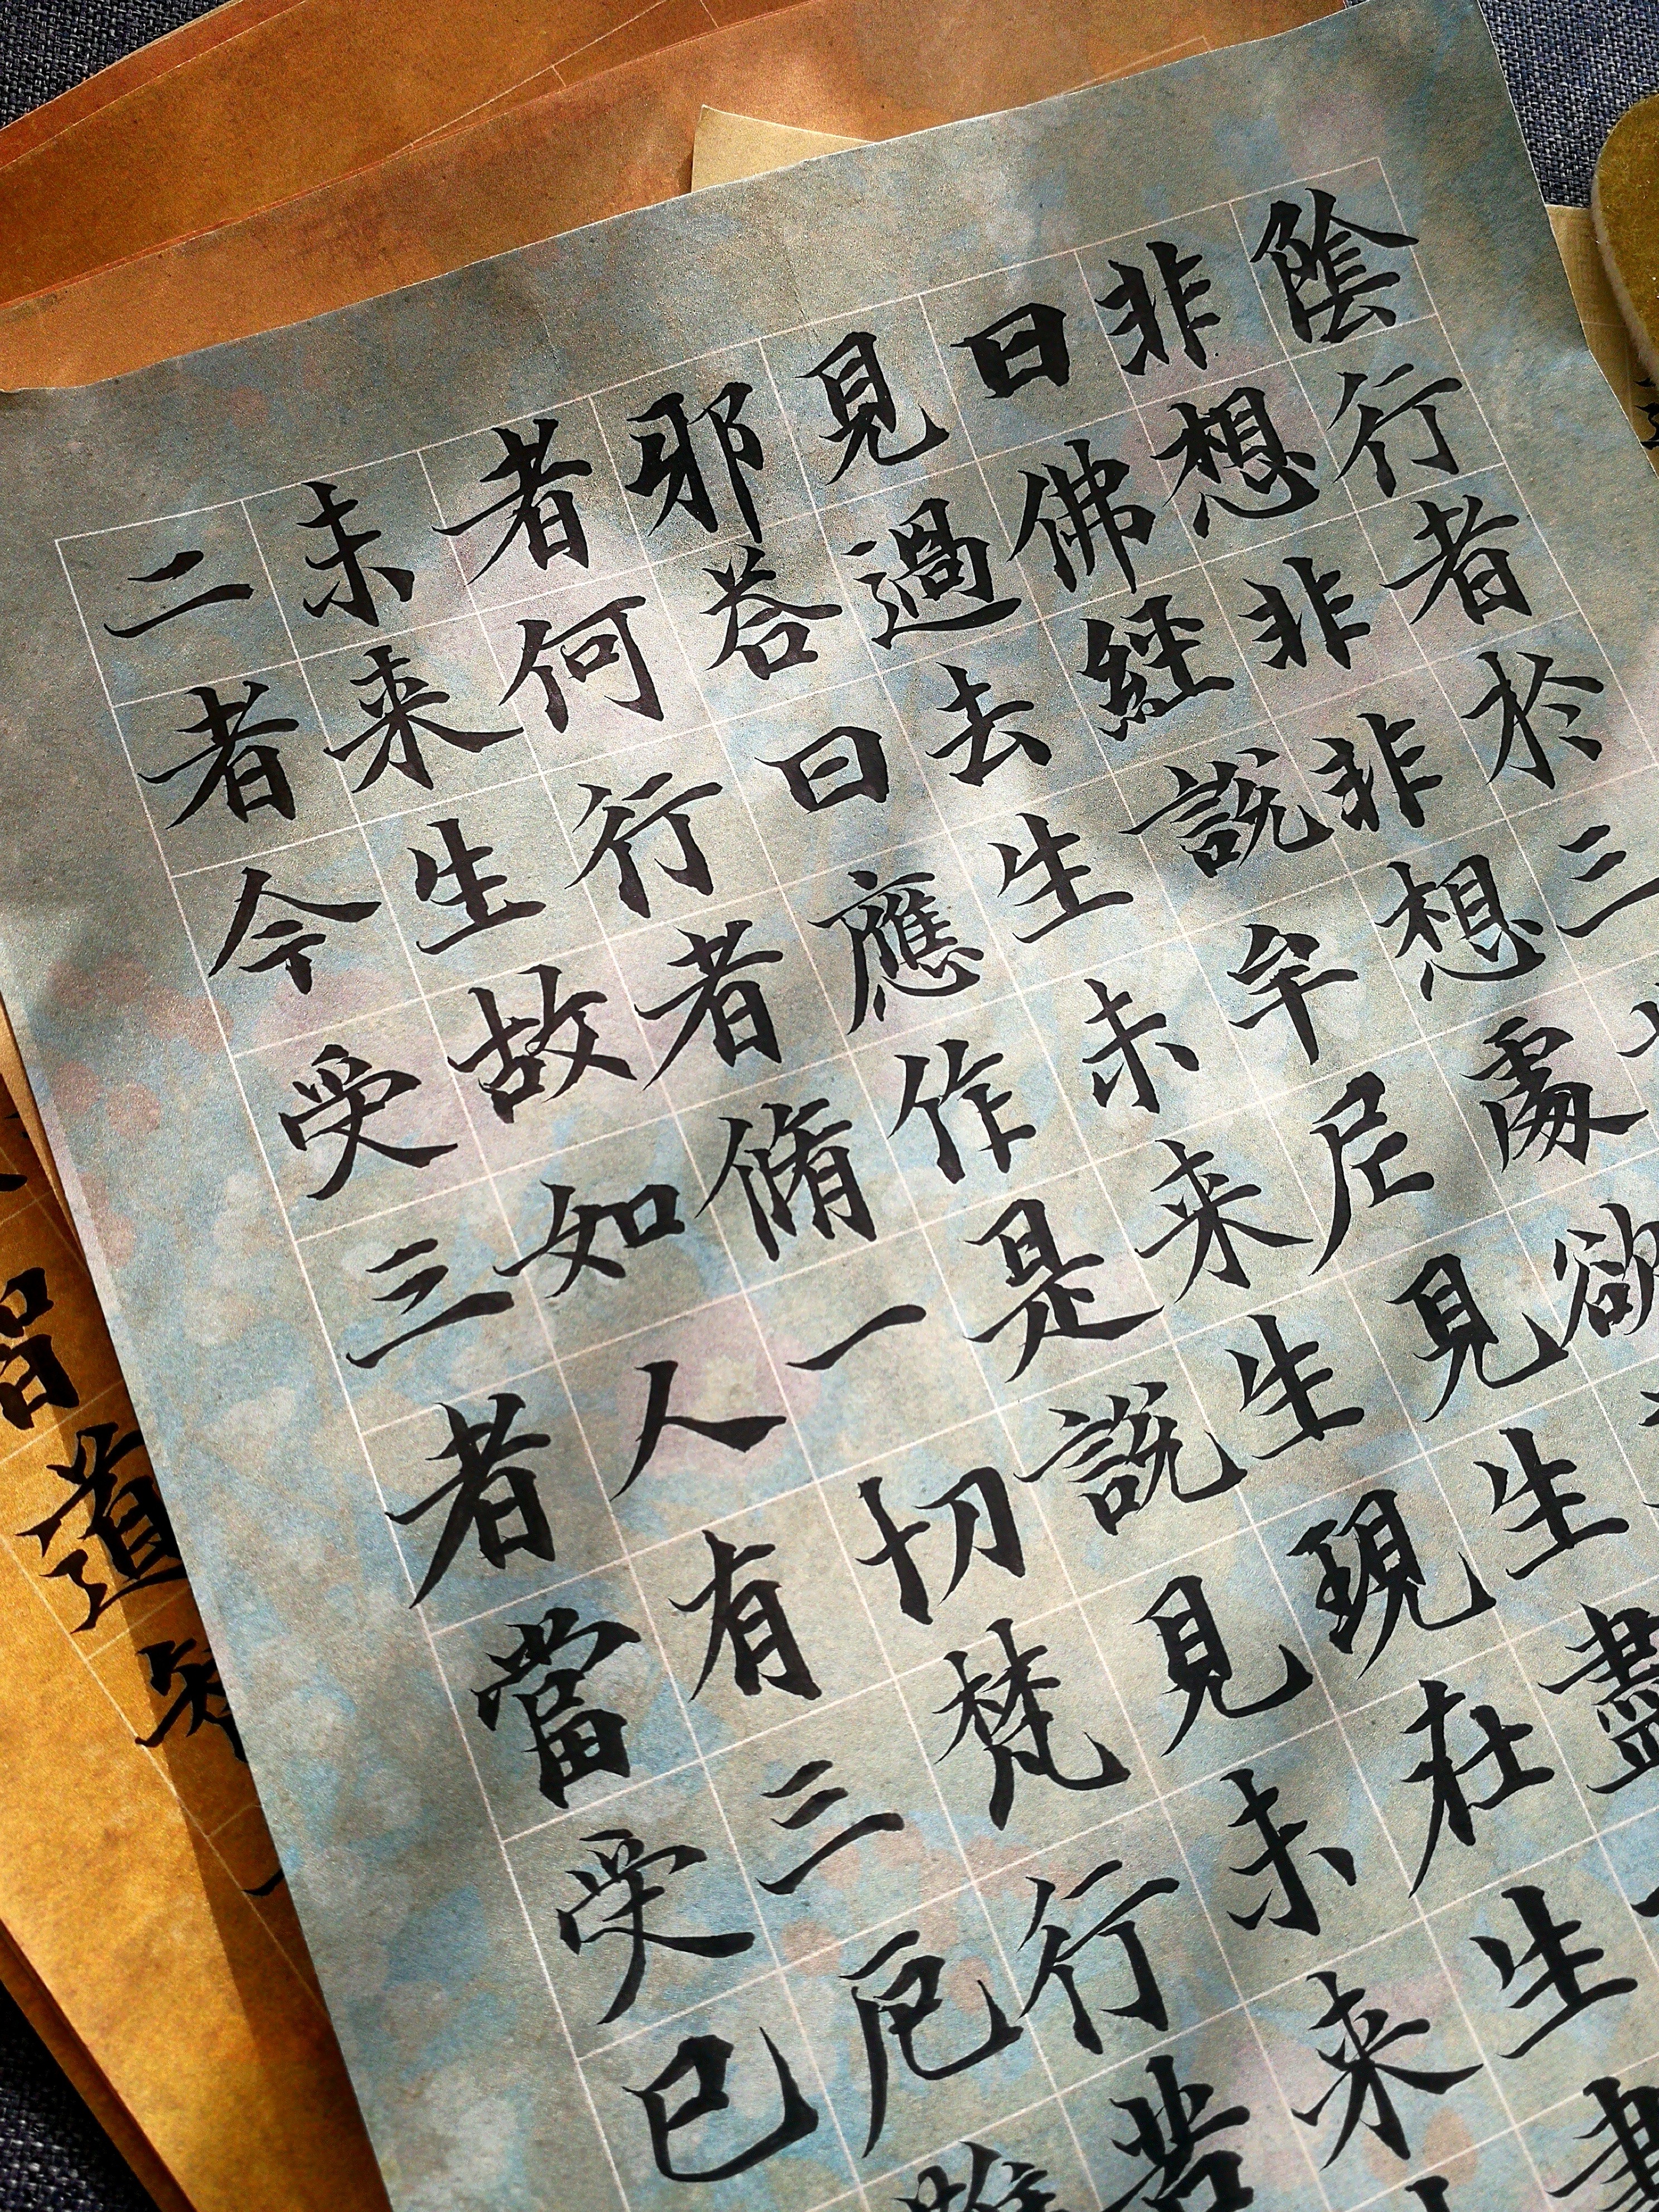 陰行者於三
非想非非想處欲
曰佛經說牟尼見生盡
見過去生未来生現在生
邪荅曰應作是說見未来
者何行者脩一切梵行
未来生故如人有三厄難
二者今受三者當受已
道